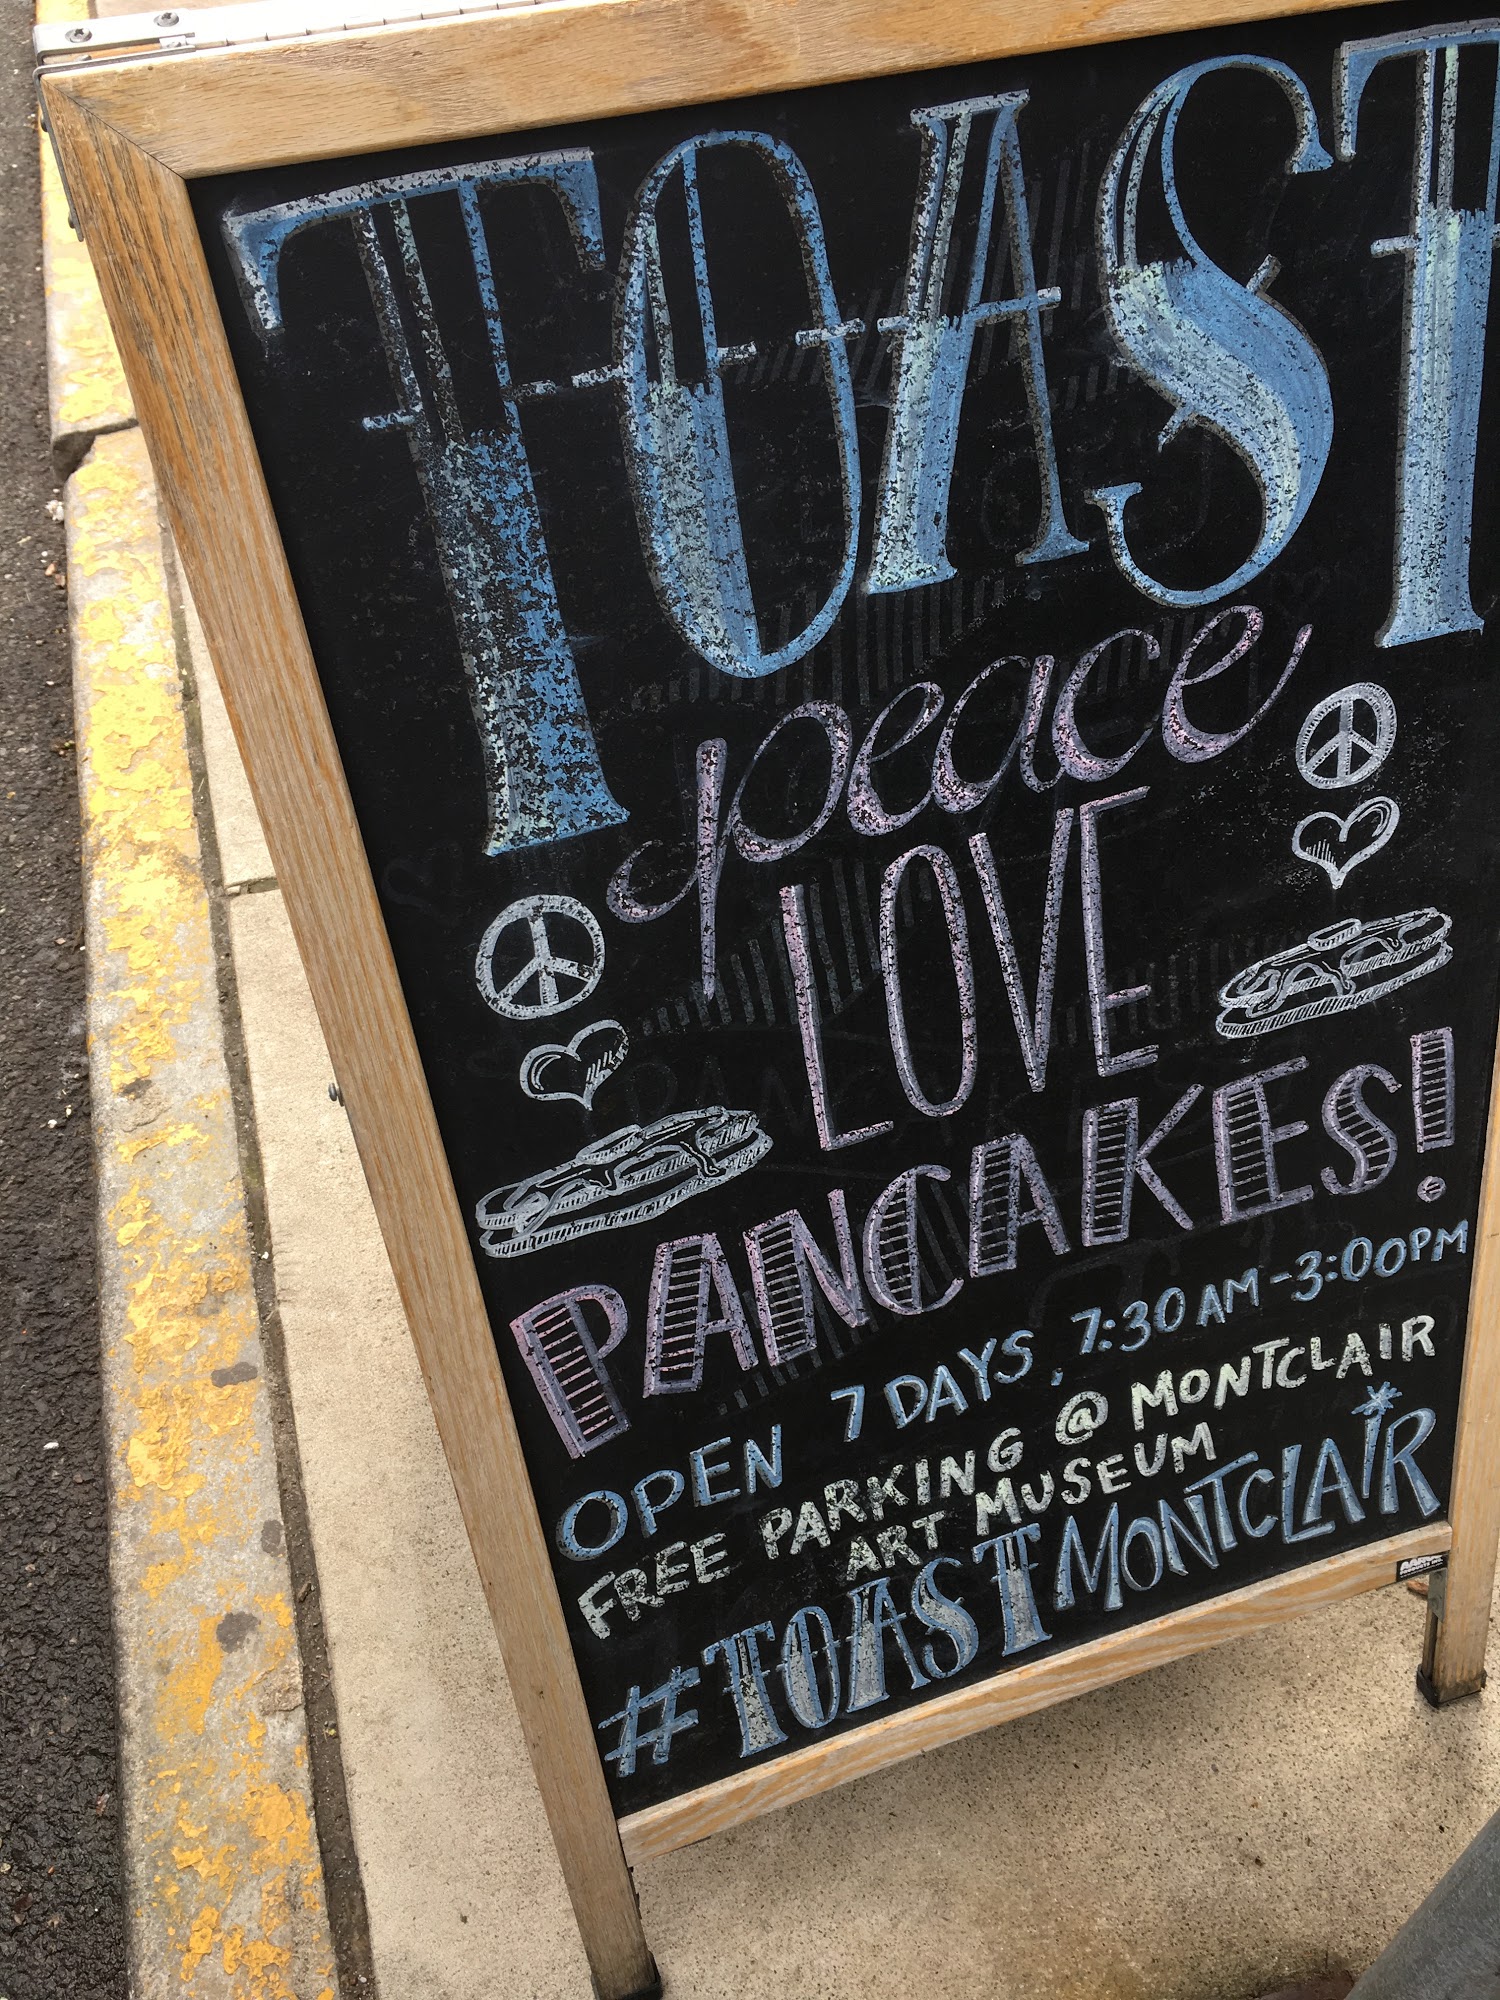 TOAST
peace
LOVE
PANCAKES!
OPEN 7 DAYS, 7:30AM-3:00PM
FREE PARKING @ MONTCLAIR
ART MUSEUM
#TOASTMONTCLAIR